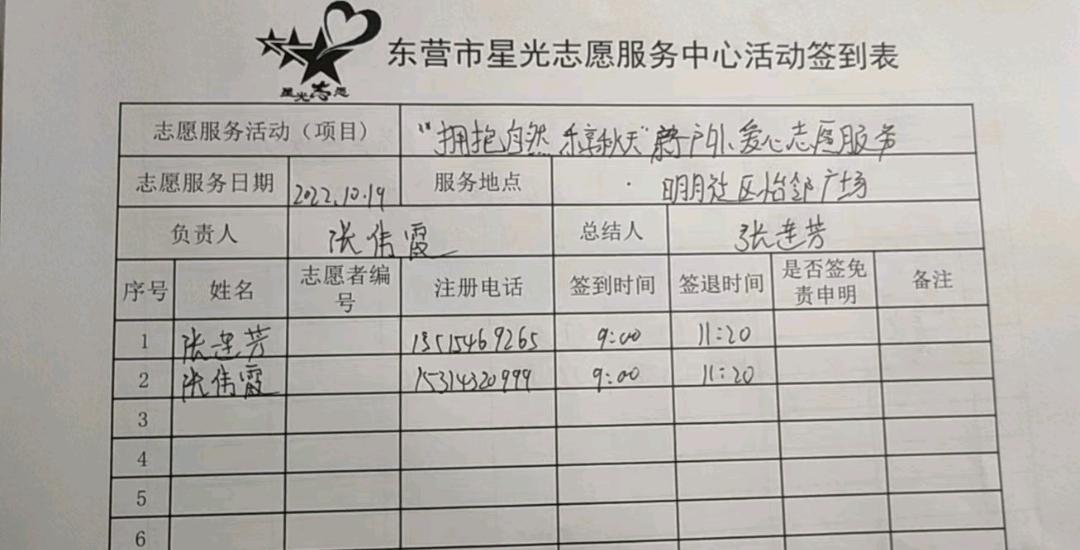 星光志愿
东营市星光志愿服务中心活动签到表
志愿服务活动（项目） “拥抱自然 乐享秋天” 户外爱心志愿服务
志愿服务日期 2022.10.19 服务地点 明月社区怡邻广场
负责人 张伟霞 总结人 张连芳
序号 姓名 志愿者编号 注册电话 签到时间 签退时间 是否签免责申明 备注
1 张连芳 13515469265 9:00 11:20
2 张伟霞 15314320999 9:00 11:20
3
4
5
6